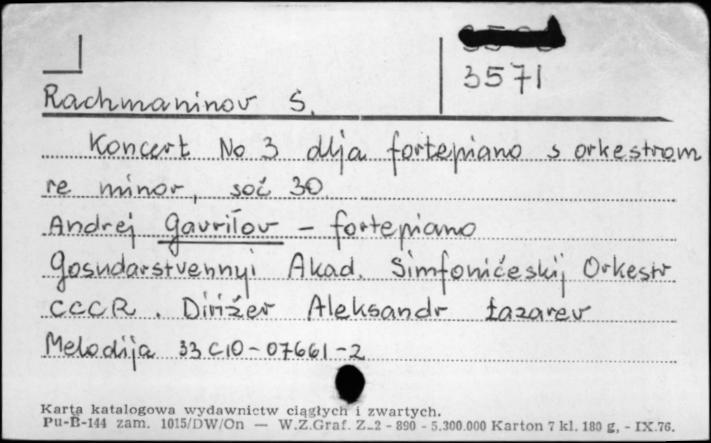 3571
Rachmaninov S.
Koncert No 3 dlja fortepiano s orkestrom
re minor, soč 30
Andrej Gavriłov - fortepiano
Gosudarstvennyi Akad. Simfoničeskij Orkestr
CCCR. Dirižer Aleksandr Łazarev
Melodija 33 C10-07661-2
Karta katalogowa wydawnictw ciągłych i zwartych.
Pu-B-144 zam. 1015/DW/On — W.Z.Graf. Z-2 - 890 - 5.300.000 Karton 7 kl. 180 g, - IX.76.